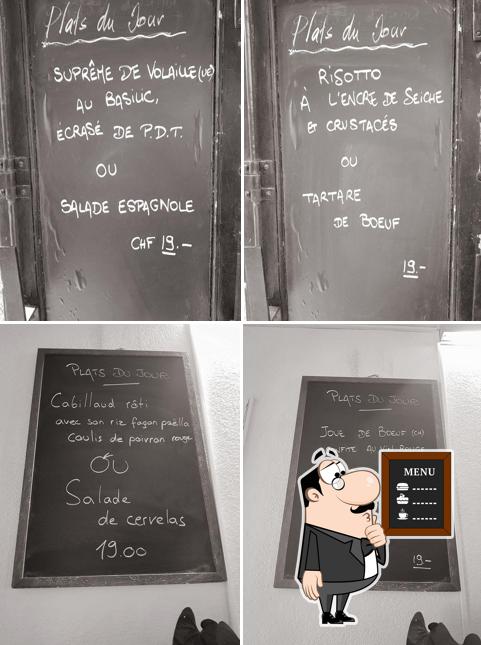 Plats du Jour
SUPRÊME DE VOLAILLE (UE)
AU BASILIC,
ÉCRASÉ DE P.D.T.
OU
SALADE ESPAGNOLE
CHF 19.-
Plats du Jour
RISOTTO
À L'ENCRE DE SEICHE
& CRUSTACÉS
OU
TARTARE
DE BOEUF
19.-
PLATS DU JOUR
Cabillaud rôti
avec son riz façon paëlla
coulis de poivron rouge
OU
Salade
de cervelas
19.00
PLATS DU JOUR
JOUE DE BOEUF (CH)
AU VIN ROUGE
MENU
19.-